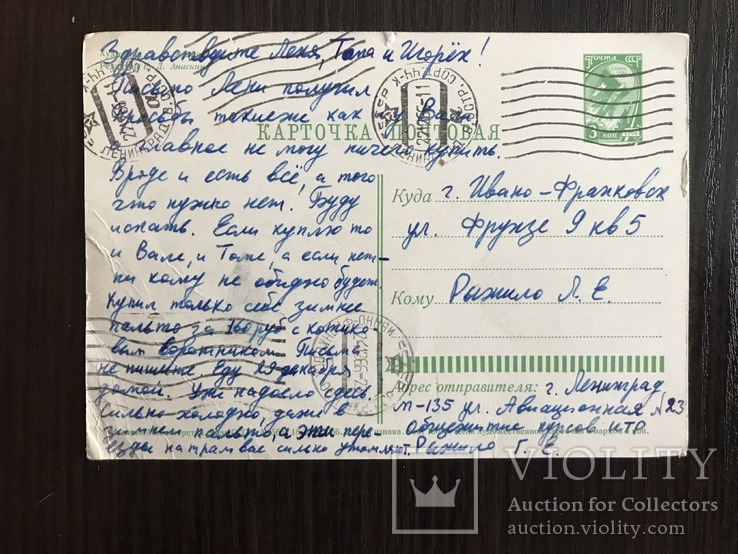 Здравствуйте Леня, Тома и Игорёк!
Письмо Лени получил
просьбы такие же как и у Вали
КАРТОЧКА ПОЧТОВАЯ
а главное не могу ничего купить.
Вроде и есть всё, а того
что нужно нет. Буду
искать. Если куплю то
и Вале, и Томе, а если нет-
ни кому не обидно будет.
Купил только себе зимнее
пальто за 160 руб с котико-
вым воротником. Письма
не пишите еду 29 декабря
домой. Уже надоело здесь,
сильно холодно, даже в
зимнем пальто, а эти пере-
езды на трамвае сильно утомляют.
ПОЧТА СССР
3 коп.
Куда г. Ивано-Франковск
ул. Фрунзе 9 кв 5
Кому Рыжило Л. Е.
Адрес отправителя: г. Ленинград
М-135 ул. Авиационная №23
общежитие курсов ИТР
Рыжило Г. Е.
Д. Анаскина
ЛЕНИНГРАД
VIOLITY
Auction for Collectors
auction.violity.com